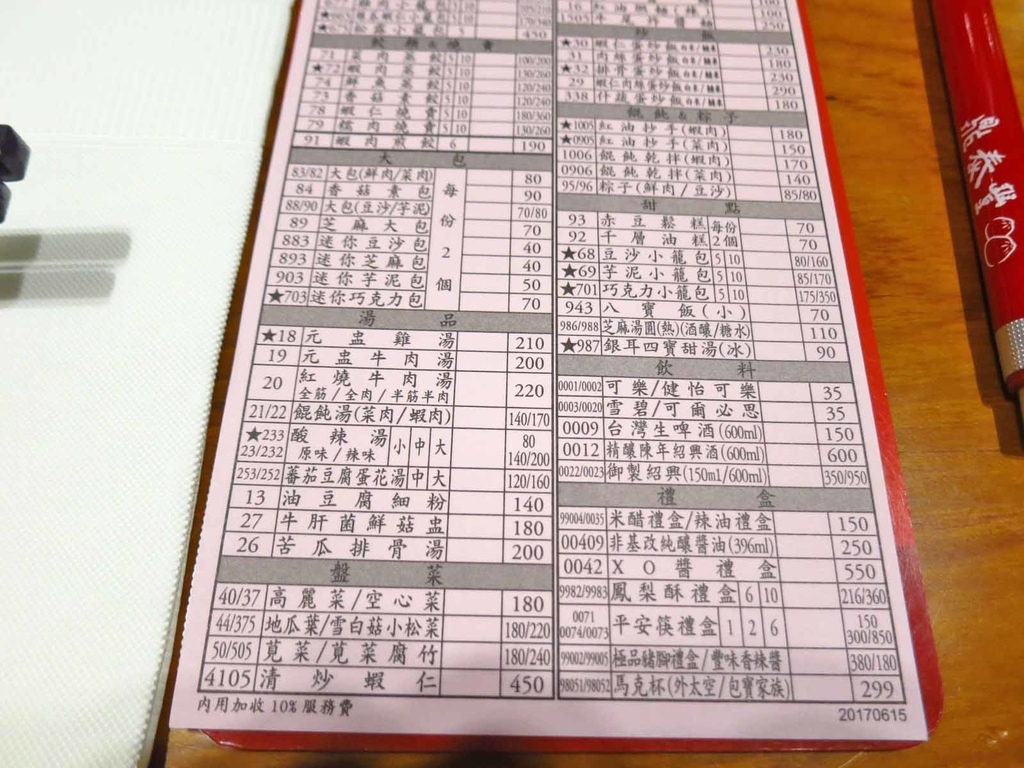 450
餃類&燒賣
71 菜肉蒸餃 5 10 100/200
★72 蝦肉蒸餃 5 10 130/260
74 鮮魚蒸餃 5 10 120/240
73 香菇素餃 5 10 120/240
78 蝦仁燒賣 5 10 180/360
79 糯肉燒賣 5 10 130/260
91 蝦肉煎餃 6 190
大包
83/82 大包(鮮肉/菜肉) 80
84 香菇素包 90
88/90 大包(豆沙/芋泥) 70/80
89 芝麻大包 70
883 迷你豆沙包 40
893 迷你芝麻包 40
903 迷你芋泥包 50
★703 迷你巧克力包 70
每份2個
湯品
★18 元盅雞湯 210
19 元盅牛肉湯 200
20 紅燒牛肉湯 220
全筋/全肉/半筋半肉
21/22 餛飩湯(菜肉/蝦肉) 140/170
★233 酸辣湯 小 中 大 80
23/232 原味/辣味 140/200
253/252 蕃茄豆腐蛋花湯 中 大 120/160
13 油豆腐細粉 140
27 牛肝菌鮮菇盅 180
26 苦瓜排骨湯 200
盤菜
40/37 高麗菜/空心菜 180
44/375 地瓜葉/雪白菇小松菜 180/220
50/505 莧菜/莧菜腐竹 180/240
4105 清炒蝦仁 450
內用加收10%服務費
1505 牛尾炸醬麵
炒飯
★30 蝦仁蛋炒飯 230
31 肉絲蛋炒飯 180
★32 排骨蛋炒飯 230
29 蝦仁肉絲蛋炒飯 290
338 什蔬蛋炒飯 180
餛飩&粽子
★1005 紅油抄手(蝦肉) 180
★0905 紅油抄手(菜肉) 150
1006 餛飩乾拌(蝦肉) 170
0906 餛飩乾拌(菜肉) 140
95/96 粽子(鮮肉/豆沙) 85/80
甜點
93 赤豆鬆糕 每份 70
92 千層油糕 2個 70
★68 豆沙小籠包 5 10 80/160
★69 芋泥小籠包 5 10 85/170
★701 巧克力小籠包 5 10 175/350
943 八寶飯(小) 70
986/988 芝麻湯圓(熱)(酒釀/糖水) 110
★987 銀耳四寶甜湯(冰) 90
飲料
0001/0002 可樂/健怡可樂 35
0003/0020 雪碧/可爾必思 35
0009 台灣生啤酒(600ml) 150
0012 精釀陳年紹興酒(600ml) 600
0022/0023 御製紹興(150ml/600ml) 350/950
禮盒
99004/0035 米醋禮盒/辣油禮盒 150
00409 非基改純釀醬油(396ml) 250
0042 XO醬禮盒 550
9982/9983 鳳梨酥禮盒 6 10 216/360
0071
0074/0073 平安筷禮盒 1 2 6 150
300/850
99002/99005 極品豬腳禮盒/豐味香辣醬 380/180
98051/98052 馬克杯(外太空/包寶家族) 299
20170615
鼎泰豐